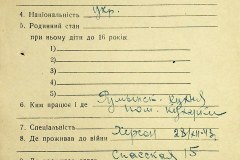 4. Національність укр.
5. Родинний стан
при ньому діти до 16 років:
1)
2)
3)
4)
5)
6. Ким працює і де Румынск. кухня
пом. кухарки
7. Спеціяльність Херсон 23/XII-43.
8. Де проживав до війни
Спасская 15